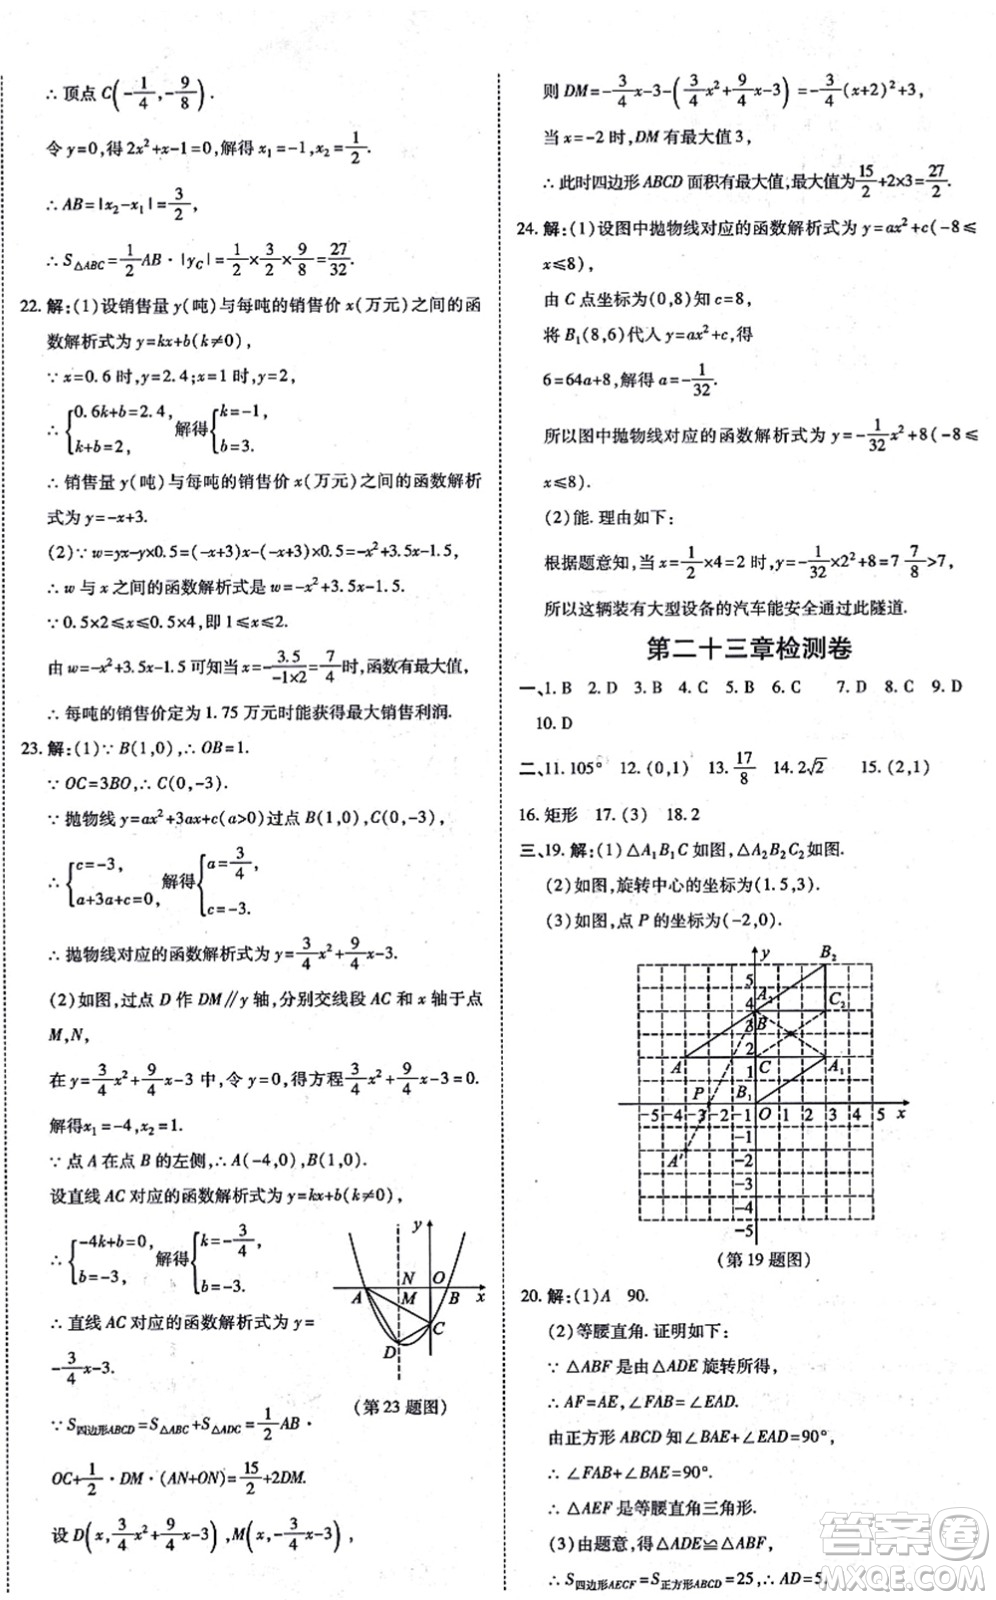 ∴顶点 C(-1/4,-9/8).
令 y=0,得 2x²+x-1=0,解得 x₁=-1,x₂=1/2.
∴AB=|x₂-x₁|=3/2,
∴S△ABC=1/2AB·|y_C|=1/2×3/2×9/8=27/32.
22.解:(1)设销售量 y(吨)与每吨的销售价 x(万元)之间的函
数解析式为 y=kx+b(k≠0),
∵x=0.6时,y=2.4;x=1时,y=2,
∴{0.6k+b=2.4, k+b=2, 解得{k=-1, b=3.
∴销售量 y(吨)与每吨的销售价 x(万元)之间的函数解析
式为 y=-x+3.
(2)∵w=yx-y×0.5=(-x+3)x-(-x+3)×0.5=-x²+3.5x-1.5,
∴w 与 x 之间的函数解析式是 w=-x²+3.5x-1.5.
∵0.5×2≤x≤0.5×4,即 1≤x≤2,
由 w=-x²+3.5x-1.5 可知当 x=-3.5/(-1×2)=7/4时,函数有最大值,
∴每吨的销售价定为1.75万元时能获得最大销售利润.
23.解:(1)∵B(1,0),∴OB=1.
∵OC=3BO,∴C(0,-3).
∵抛物线 y=ax²+3ax+c(a>0)过点 B(1,0),C(0,-3),
∴{c=-3, a+3a+c=0, 解得{a=3/4, c=-3.
∴抛物线对应的函数解析式为 y=3/4x²+9/4x-3.
(2)如图,过点 D 作 DM∥y 轴,分别交线段 AC 和 x 轴于点
M,N,
在 y=3/4x²+9/4x-3 中,令 y=0,得方程3/4x²+9/4x-3=0.
解得x₁=-4,x₂=1.
∵点 A 在点 B 的左侧,∴A(-4,0),B(1,0).
设直线 AC 对应的函数解析式为 y=kx+b(k≠0),
∴{-4k+b=0, b=-3. 解得{k=-3/4, b=-3.
∴直线 AC 对应的函数解析式为 y=
-3/4x-3.
y
N O
A M B x
C
D
(第23题图)
∵S四边形ABCD=S△ABC+S△ADC=1/2AB·
OC+1/2·DM·(AN+ON)=15/2+2DM.
设 D(x,3/4x²+9/4x-3),M(x,-3/4x-3),
则 DM=-3/4x-3-(3/4x²+9/4x-3)=-3/4(x+2)²+3,
当 x=-2时,DM 有最大值3,
∴此时四边形 ABCD 面积有最大值,最大值为15/2+2×3=27/2.
24.解:(1)设图中抛物线对应的函数解析式为 y=ax²+c(-8≤
x≤8),
由 C 点坐标为(0,8)知 c=8,
将 B₁(8,6)代入 y=ax²+c,得
6=64a+8,解得 a=-1/32.
所以图中抛物线对应的函数解析式为 y=-1/32x²+8(-8≤
x≤8).
(2)能.理由如下:
根据题意知,当 x=1/2×4=2时,y=-1/32×2²+8=7 7/8>7,
所以这辆装有大型设备的汽车能安全通过此隧道.
第二十三章检测卷
一、1.B 2.D 3.B 4.C 5.B 6.C 7.D 8.C 9.D
10.D
二、11.105° 12.(0,1) 13.17/8 14.2√2 15.(2,1)
16.矩形 17.(3) 18.2
三、19.解:(1)△A₁B₁C 如图,△A₂B₂C₂如图.
(2)如图,旋转中心的坐标为(1.5,3).
(3)如图,点 P 的坐标为(-2,0).
y B₂
5
4 A₂ C₂
3 B
2
A C A₁
1
P B₁
-5-4-3-2-1 O 1 2 3 4 5 x
-1
A′ -2
-3
-4
-5
(第19题图)
20.解:(1)A 90.
(2)等腰直角.证明如下:
∵△ABF 是由△ADE 旋转所得,
∴AF=AE,∠FAB=∠EAD,
由正方形 ABCD 知∠BAE+∠EAD=90°,
∴∠FAB+∠BAE=90°.
∴△AEF 是等腰直角三角形.
(3)由题意,得△ADE≌△ABF,
∴S四边形AECF=S正方形ABCD=25,∴AD=5,
答案圈
MXQE.COM